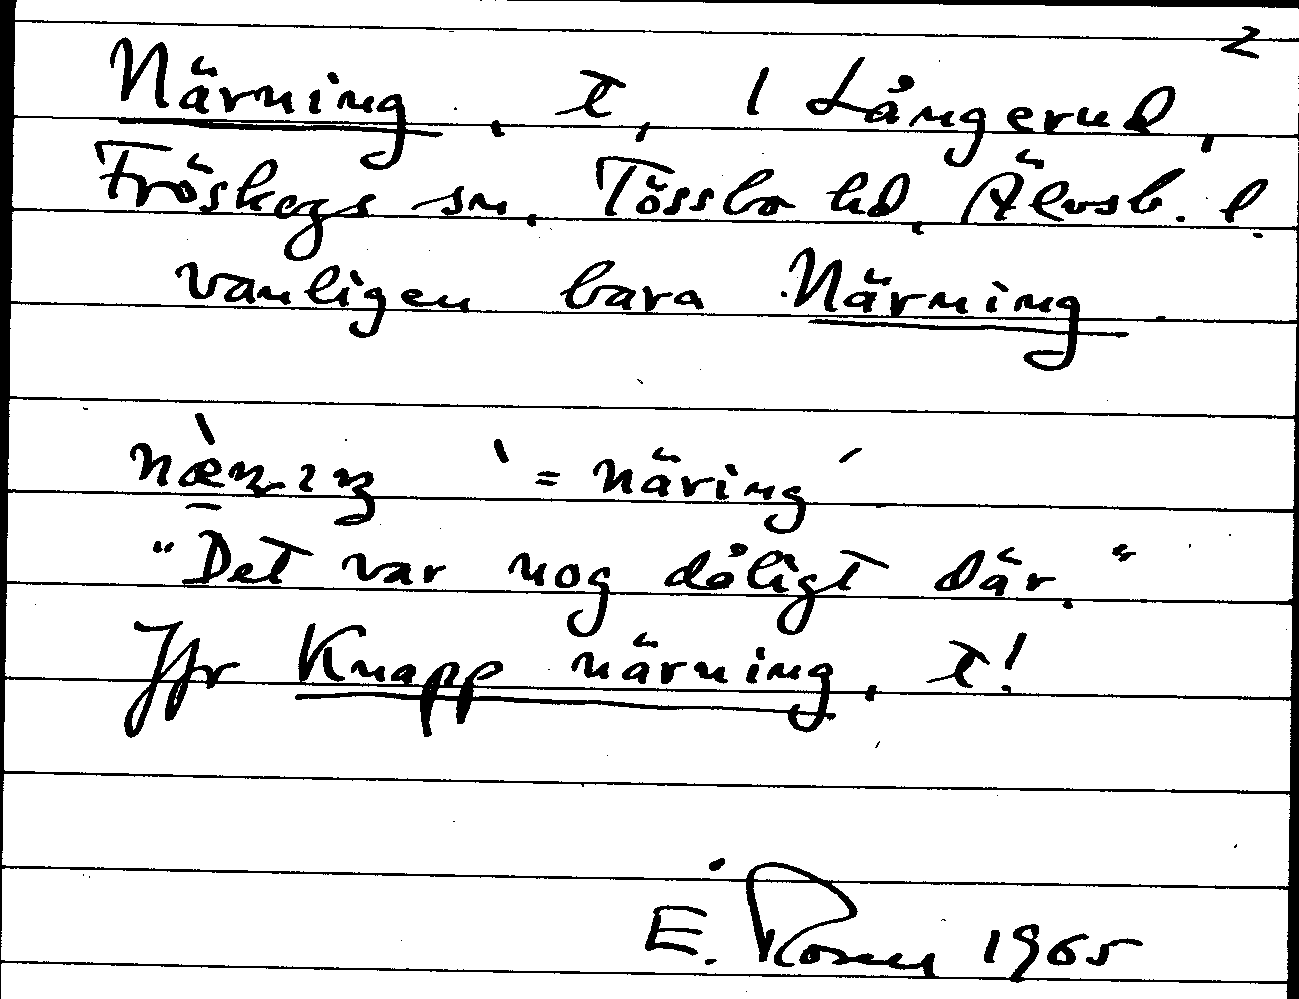 2
Närning, t, 1 Långerud,
Fröskogs sn. Tössbo hd, Älvsb. l.
vanligen bara Närning
` = näring ´
"Det var nog dåligt där."
Jfr Knapp närning, t!
E. 1965